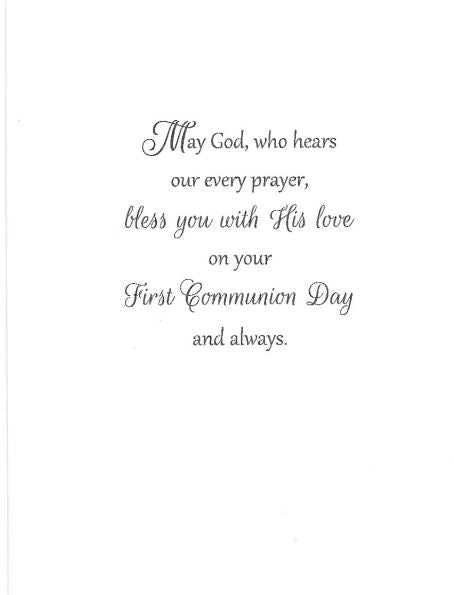 May God, who hears
our every prayer,
bless you with His love
on your
First Communion Day
and always.